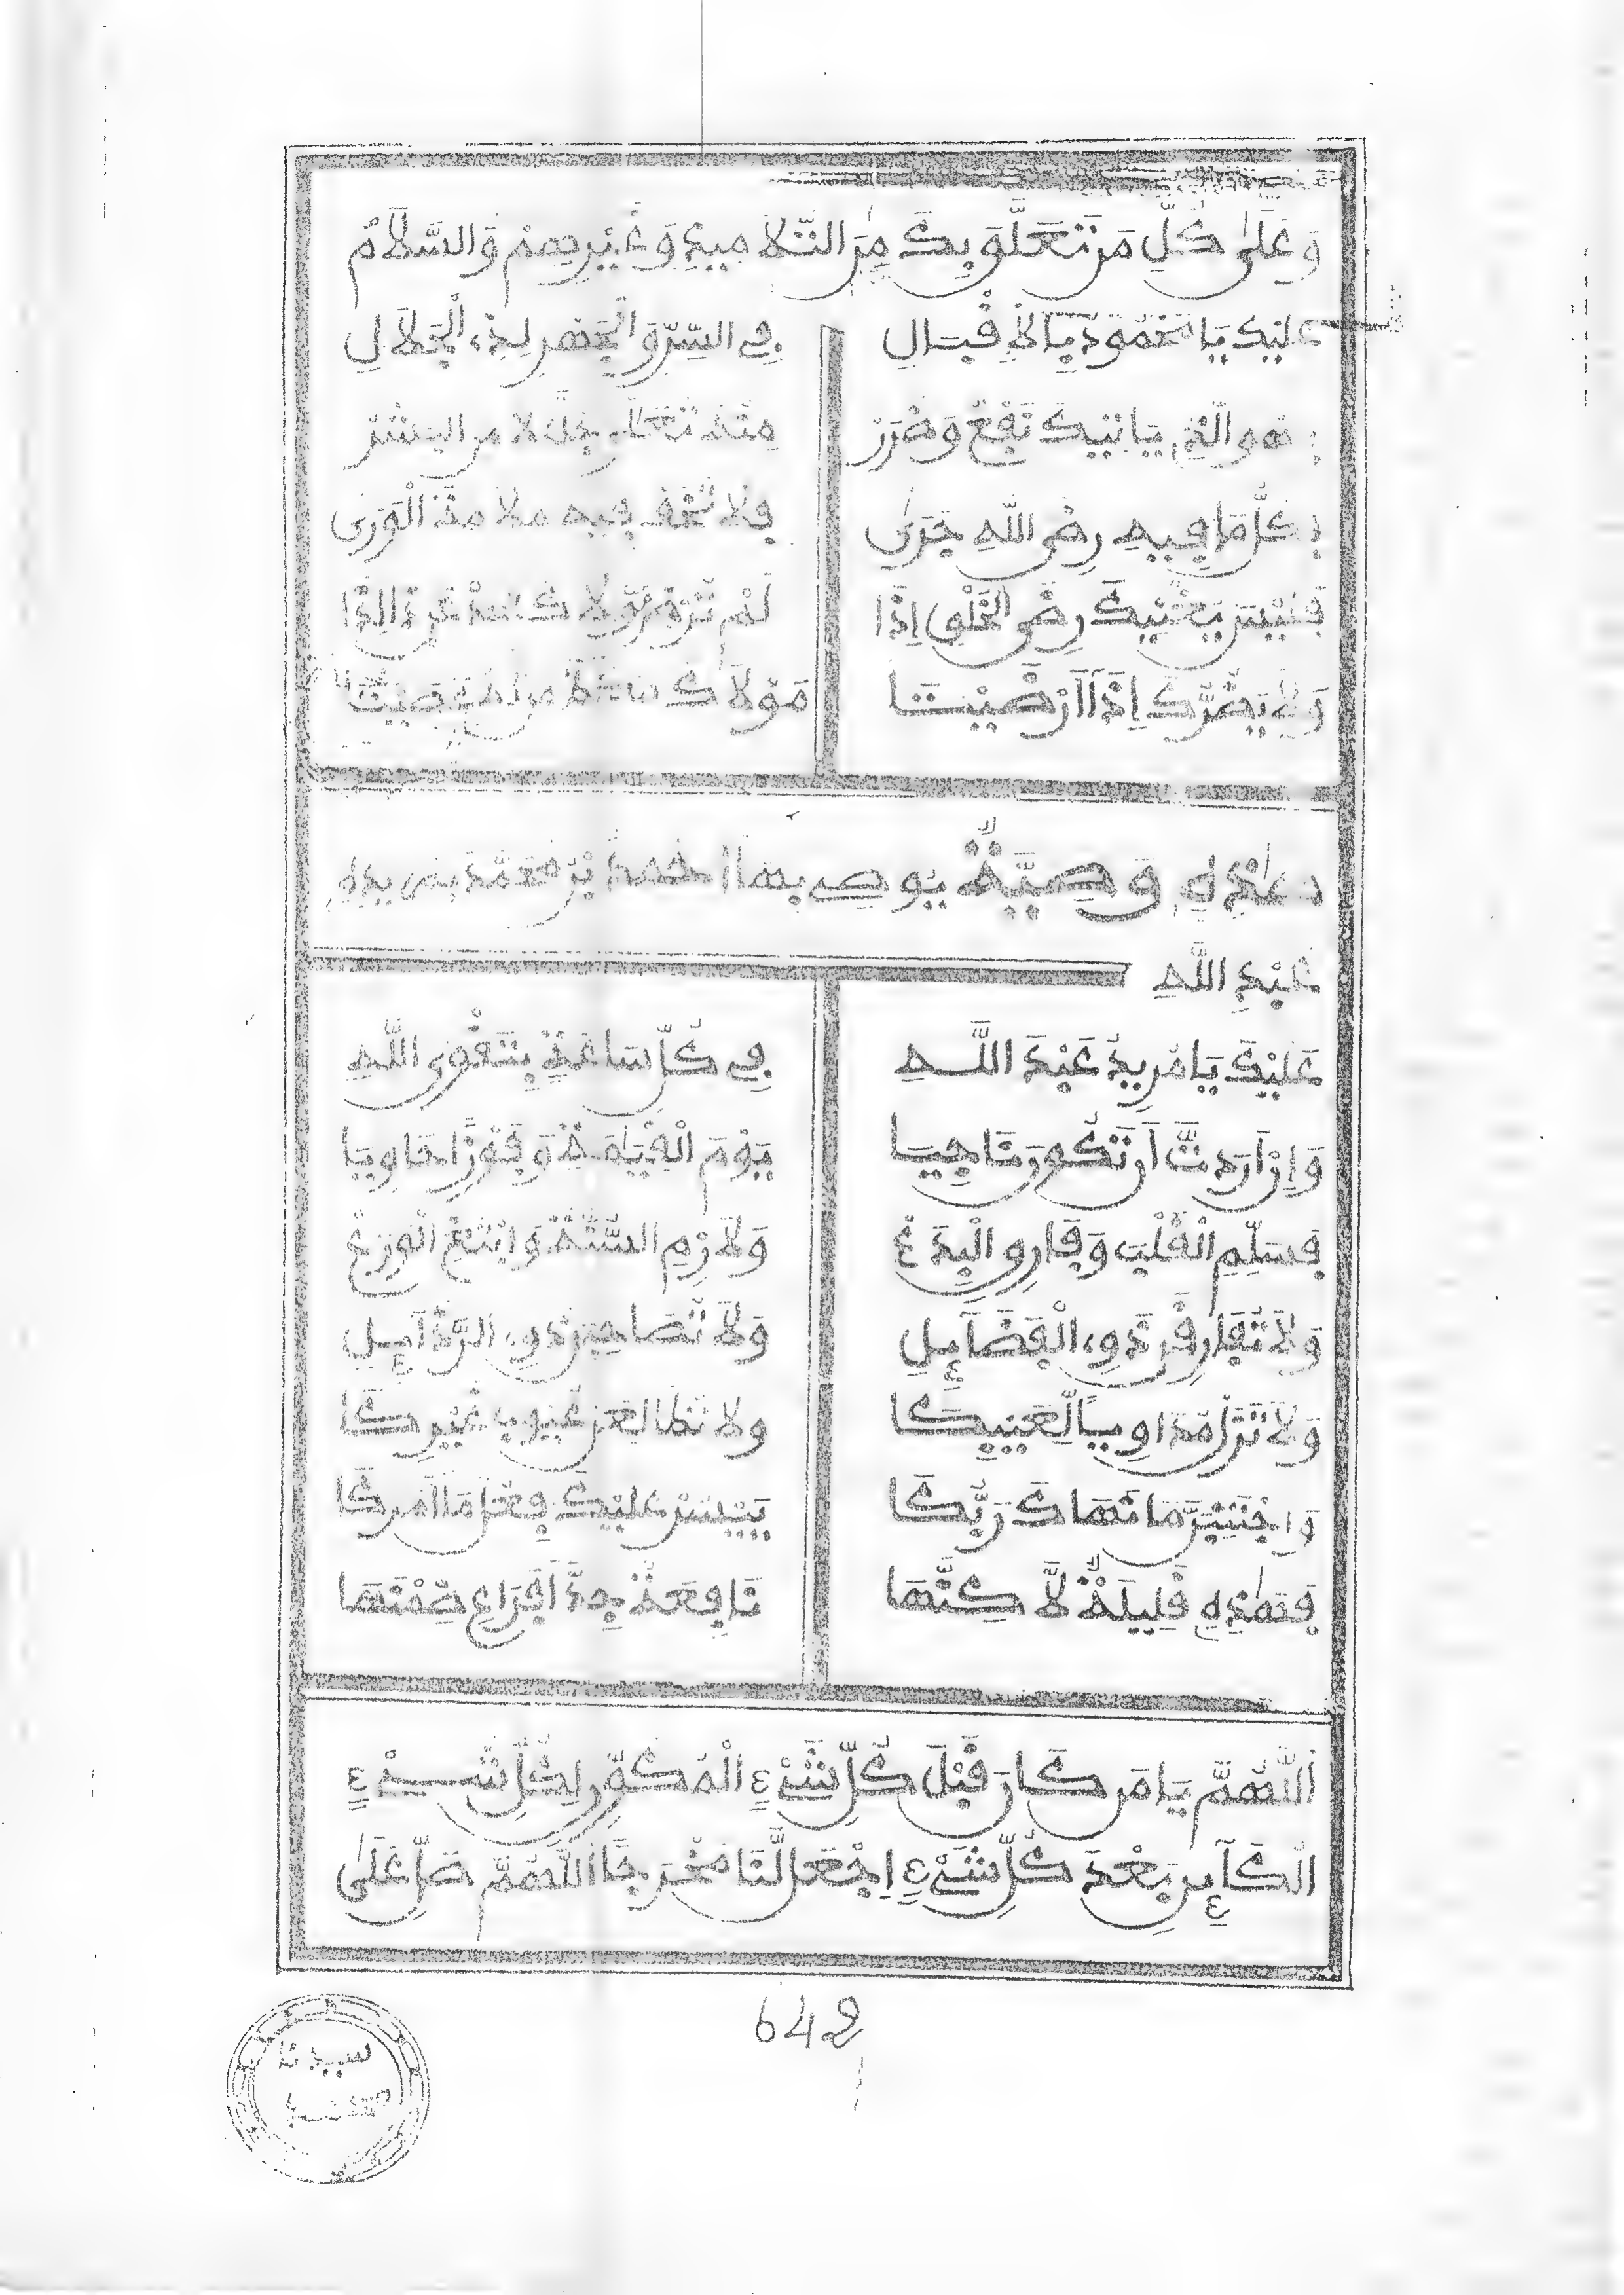 وَعَلَىٰ كُلِّ مَن تَعَلَّقَ بِكَ مِنَ التَّلَامِيذِ وَغَيْرِهِمْ وَالسَّلَامُ
عَلَيْكَ يَا مَحْمُودُ بِالْإِقْبَالِ فِي السِّرِّ وَالْجَهْرِ لِذِي الْجَلَالِ
هُوَ الَّذِي يَأْتِيكَ نَفْعٌ وَضَرَرْ مِنْهُ تَعَالَى جَلَّ لَا مِنَ الْبَشَرْ
كُلُّ مَا فِيهِ رِضَى اللَّهِ جَرَىٰ فَلَا تَخَفْ فِيهِ مَلَامَةَ الْوَرَىٰ
فَلَيْسَ يُغْنِيكَ رِضَى الْخَلْقِ إِذَا لَمْ تُرْضِ مَوْلَاكَ
وَلَا يَضُرُّكَ إِذَا أَرْضَيْتَا مَوْلَاكَ سُخْطُ مَنْ لَهُ عَصَيْتَا
هَٰذِهِ وَصِيَّةٌ يُوصِي بِهَا أَحْمَدُ بْنُ مُحَمَّدٍ
عَبْدِ اللَّهِ
عَلَيْكَ يَا مُرِيدُ عَبْدَ اللَّهِ فِي كُلِّ سَاعَةٍ بِتَقْوَى اللَّهِ
وَإِنْ أَرَدتَّ أَن تَكُونَ نَاجِيَا يَوْمَ الْقِيَٰمَةِ وَفَوْزًا حَاوِيَا
فَسَلِّمِ الْقَلْبَ وَفَارِقِ الْبِدَعْ وَلَازِمِ السُّنَّةَ وَاتْبَعِ الْوَرَعْ
وَلَا تُفَارِقْ ذَوِي الْفَضَائِلِ وَلَا تُصَاحِبْ ذَوِي الرَّذَائِلِ
وَلَا تَزَلْ مُدَاوِيًا لِعَيْبِكَا وَلَا تُطَالِعَنْ عُيُوبَ غَيْرِكَا
وَاجْتَنِبَنْ مَا نَهَاكَ رَبُّكَا يَيْسُرْ عَلَيْكَ فِعْلُ مَا أَمَرَكَا
فَهَٰذِهِ قَلِيلَةٌ لَّٰكِنَّهَا نَافِعَةٌ جِدًّا
اللَّهُمَّ يَا مَن كَانَ قَبْلَ كُلِّ شَيْءٍ الْمُكَوِّنُ لِكُلِّ شَيْءٍ
الْكَائِنُ بَعْدَ كُلِّ شَيْءٍ اجْعَل لَّنَا مَخْرَجًا اللَّهُمَّ صَلِّ عَلَىٰ
642
سيدنا